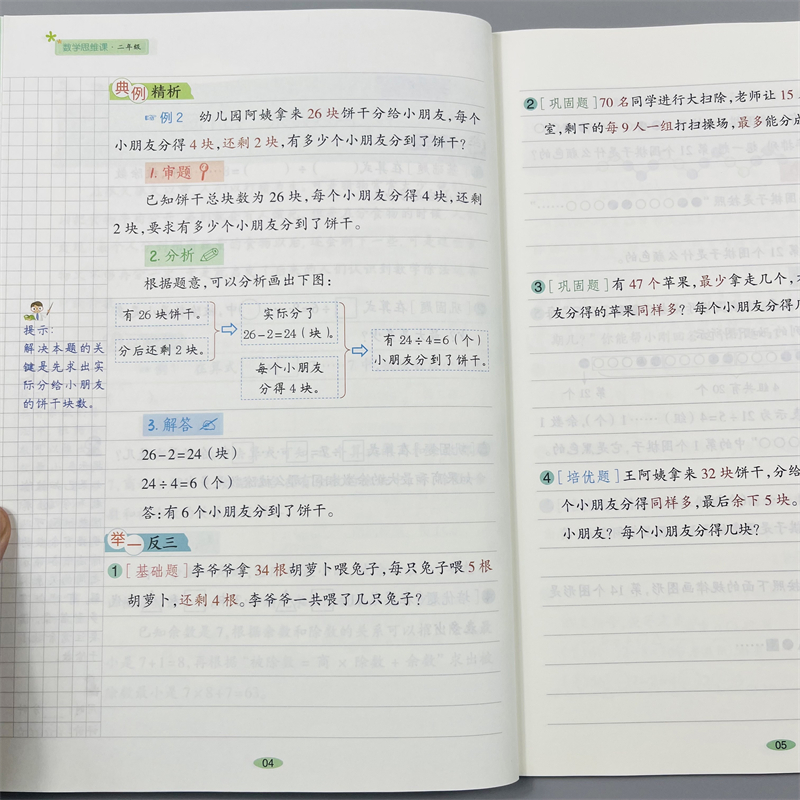 数学思维课·二年级
典例精析
例2 幼儿园阿姨拿来26块饼干分给小朋友,每个
小朋友分得4块,还剩2块,有多少个小朋友分到了饼干?
1.审题
已知饼干总块数为26块,每个小朋友分得4块,还剩
2块,要求有多少个小朋友分到了饼干。
2.分析
根据题意,可以分析画出下图:
有26块饼干。
分后还剩2块。
实际分了
26-2=24(块)。
每个小朋友
分得4块。
有24÷4=6(个)
小朋友分到了饼干。
提示:
解决本题的关
键是先求出实
际分给小朋友
的饼干块数。
3.解答
26-2=24(块)
24÷4=6(个)
答:有6个小朋友分到了饼干。
举一反三
1[基础题]李爷爷拿34根胡萝卜喂兔子,每只兔子喂5根
胡萝卜,还剩4根。李爷爷一共喂了几只兔子?
04
2[巩固题]70名同学进行大扫除,老师让15
室,剩下的每9人一组打扫操场,最多能分成
3[巩固题]有47个苹果,最少拿走几个,
友分得的苹果同样多?每个小朋友分得几
4[培优题]王阿姨拿来32块饼干,分给
个小朋友分得同样多,最后余下5块。
小朋友?每个小朋友分得几块?
05